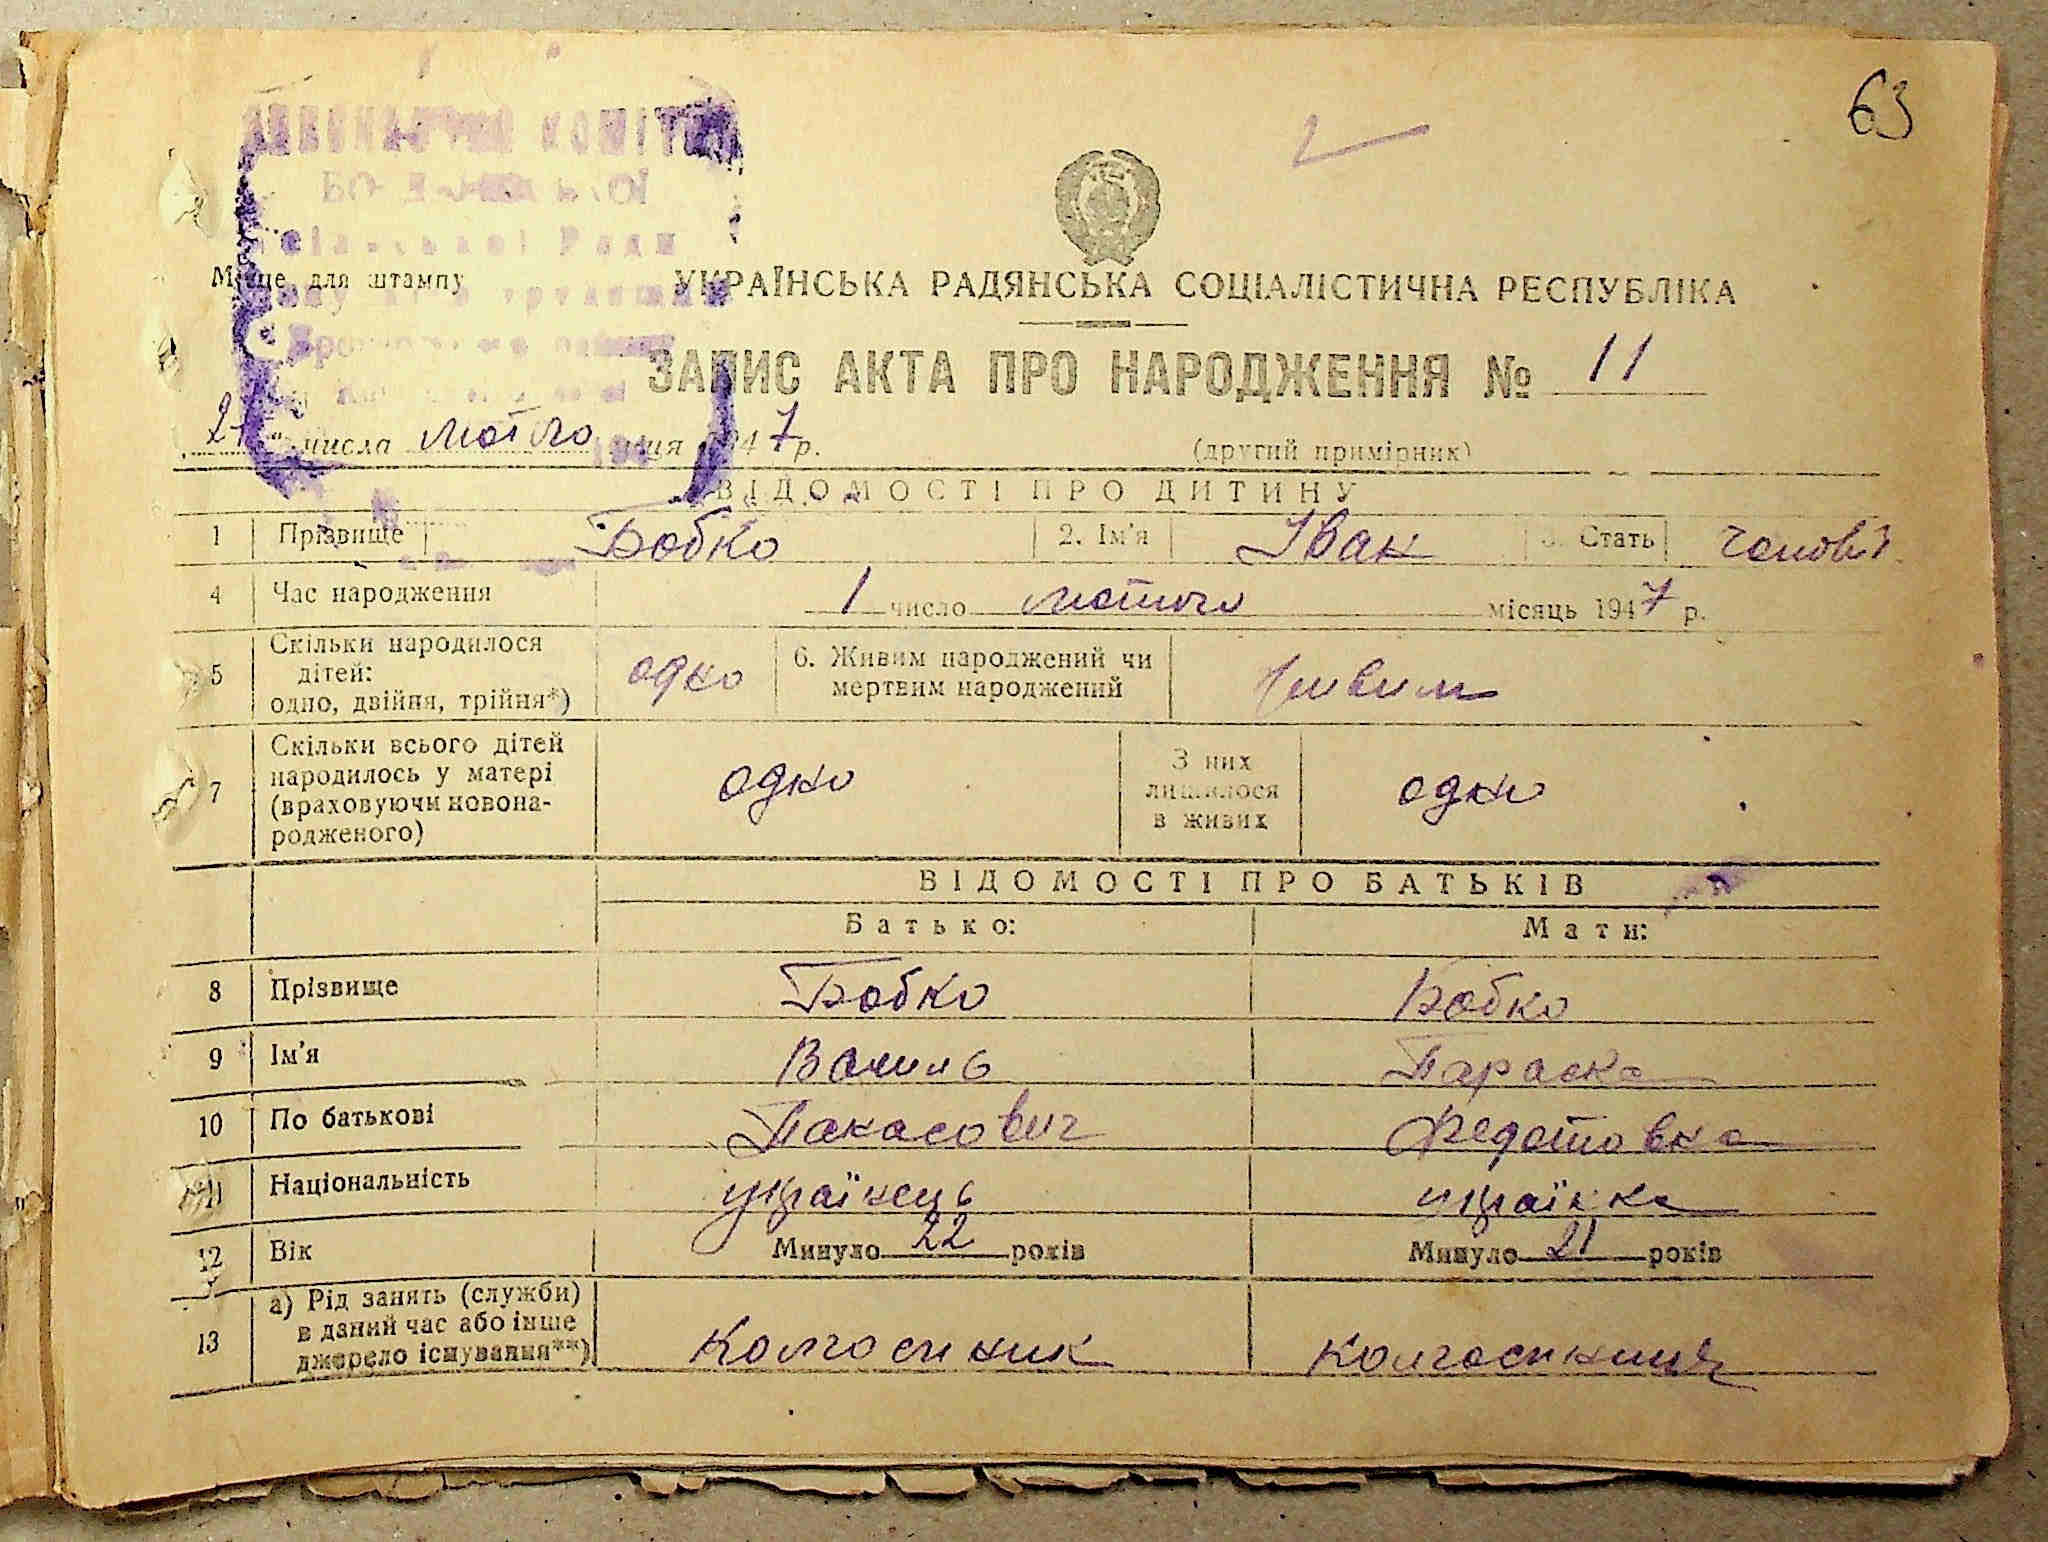 63
КОМІТ
Місце для штампу
УКРАЇНСЬКА РАДЯНСЬКА СОЦІАЛІСТИЧНА РЕСПУБЛІКА
ЗАПИС АКТА ПРО НАРОДЖЕННЯ № 11
числа лютого 1947 р.
(другий примірник)
ВІДОМОСТІ ПРО ДИТИНУ
1 Прізвище Бобко 2. Ім'я Іван 3. Стать
4 Час народження 1 число лютого місяць 1947 р.
5 Скільки народилося дітей: одно, двійня, трійня*) одно 6. Живим народжений чи мертвим народжений живим
7 Скільки всього дітей народилось у матері (враховуючи новонародженого) одно З них лишилося в живих одно
ВІДОМОСТІ ПРО БАТЬКІВ
Батько: Мати:
8 Прізвище Бобко Бобко
9 Ім'я Василь Параска
10 По батькові Панасович Федотовна
11 Національність українець українка
12 Вік Минуло 22 років Минуло 21 років
13 а) Рід занять (служби) в даний час або інше джерело існування**) Колгоспник Колгоспниця